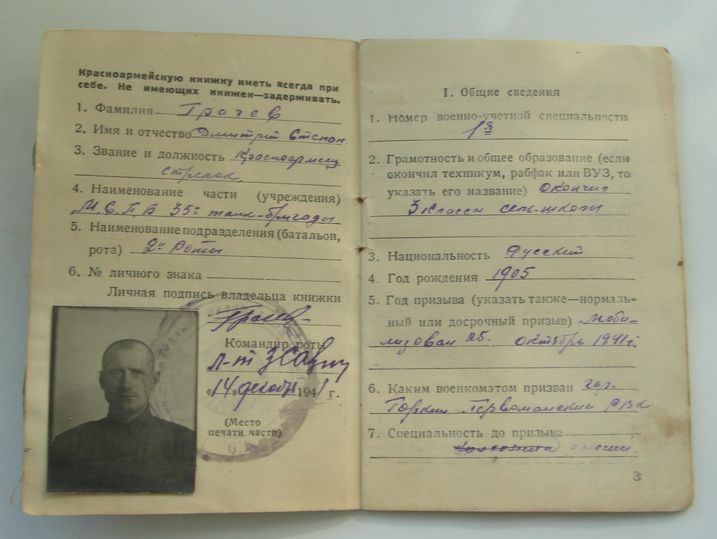 Красноармейскую книжку иметь всегда при
себе. Не имеющих книжек—задерживать.
1. Фамилия Грачев
2. Имя и отчество Дмитрий Степан.
3. Звание и должность Красноармеец
стрелок
4. Наименование части (учреждения)
М.С.П.Б 35й танк-бригады
5. Наименование подразделения (батальон,
рота) 2й Роты
6. № личного знака
Личная подпись владельца книжки
Командир роты
л-т
„14" декабр 1941 г.
(Место
печати части)
I. Общие сведения
1. Номер военно-учетной специальности
1я
2. Грамотность и общее образование (если
окончил техникум, рабфак или ВУЗ, то
указать его название) окончил
3 класса сель-школы
3. Национальность Русский
4. Год рождения 1905
5. Год призыва (указать также—нормаль-
ный или досрочный призыв) моби-
лизован 25. октябрь 1941 г
6. Каким военкоматом призван гор.
Горкий Первомайский РВК
7. Специальность до призыва
3